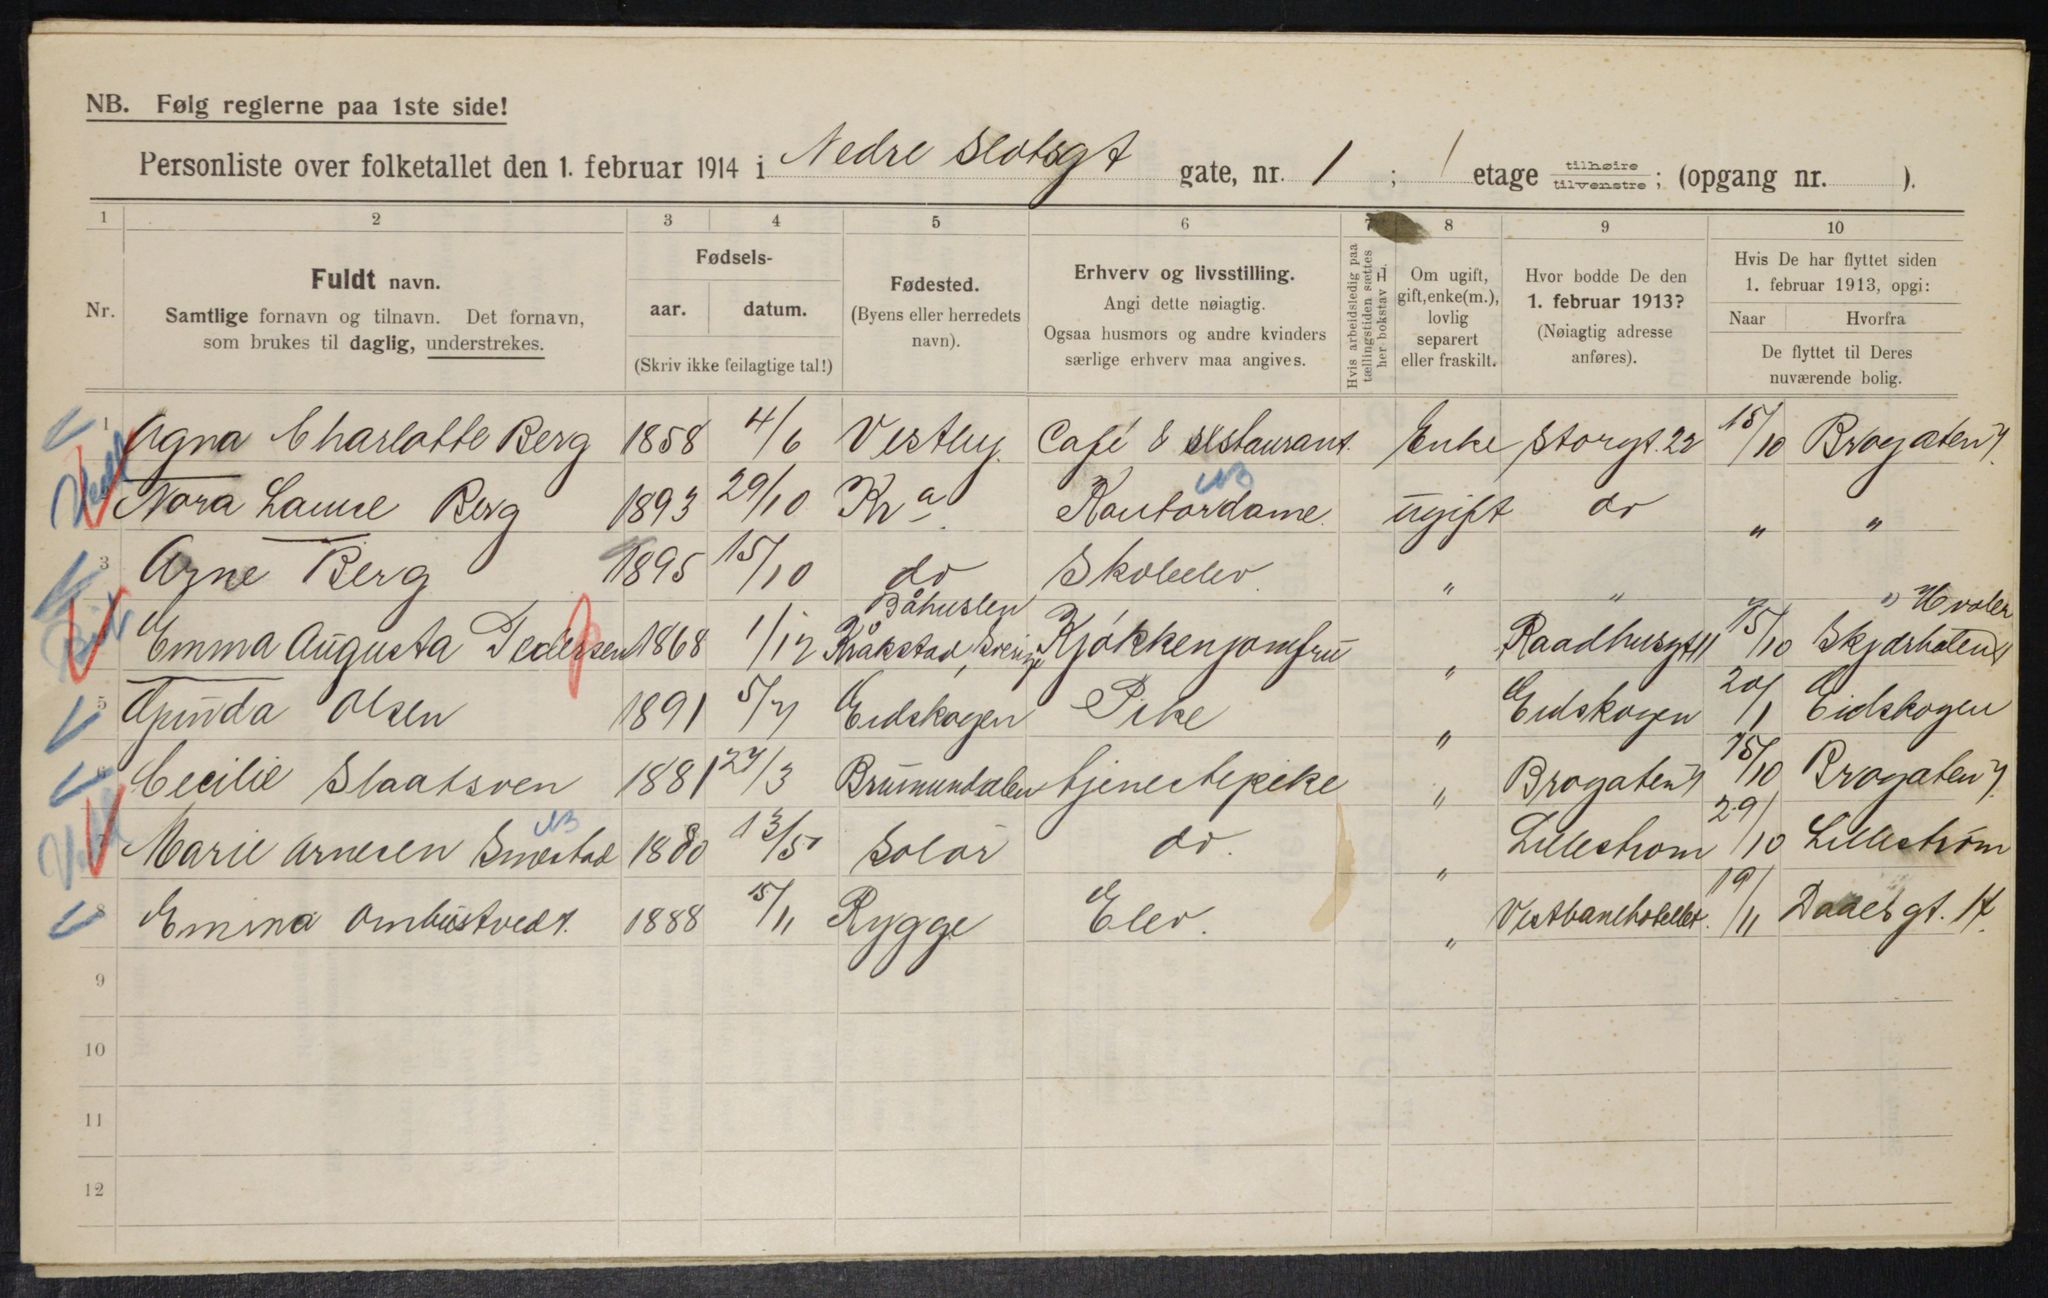 NB. Følg reglerne paa 1ste side!
Personliste over folketallet den 1. februar 1914 i Nedre Slotsgt gate, nr. 1 ; 1 etage tilhøire tilvenstre; (opgang nr. ).
1 2 3 4 5 6 7 8 9 10
Nr.
Fuldt navn.
Samtlige fornavn og tilnavn. Det fornavn,
som brukes til daglig, understrekes.
Fødsels-
aar. datum.
(Skriv ikke feilagtige tal!)
Fødested.
(Byens eller herredets
navn).
Erhverv og livsstilling.
Angi dette nøiagtig.
Ogsaa husmors og andre kvinders
særlige erhverv maa angives.
Hvis arbeidsledig paa
tællingstiden sættes
her bokstav L.
Om ugift,
gift, enke(m.),
lovlig
separert
eller fraskilt.
Hvor bodde De den
1. februar 1913?
(Nøiagtig adresse
anføres).
Hvis De har flyttet siden
1. februar 1913, opgi:
Naar Hvorfra
De flyttet til Deres
nuværende bolig.
1 Agna Charlotte Berg 1858 4/6 Vestby Café & restaurant. Enke Storgt. 22 15/10 Brogaten 7.
Nora Lause Berg 1893 29/10 Kra. Kontordame. NB ugift do " "
3 Arne Berg 1895 15/10 do Skoleelev. " " " "
Emma Augusta Pedersen 1868 1/12 Båhuslen Kråkstad, Sverige Kjøkkenjomfru " Raadhusgt 11 15/10 Hvaler Skjærhalen
5 Gunda Olsen 1891 5/7 Eidskogen Pike " Eidskogen 20/1 Eidskogen
6 Cecilie Slaatsven 1881 27/3 Brumunddalen tjenestepike " Brogaten 7 15/10 Brogaten 7.
7 Marie Arnesen Smestad NB 1880 13/5 Solør do. " Lillestrøm 29/10 Lillestrøm
8 Emma Ombustvedt. 1888 15/11 Rygge Elev. " Vestbanehotellet. 19/11 Daaesgt. 17.
9
10
11
12